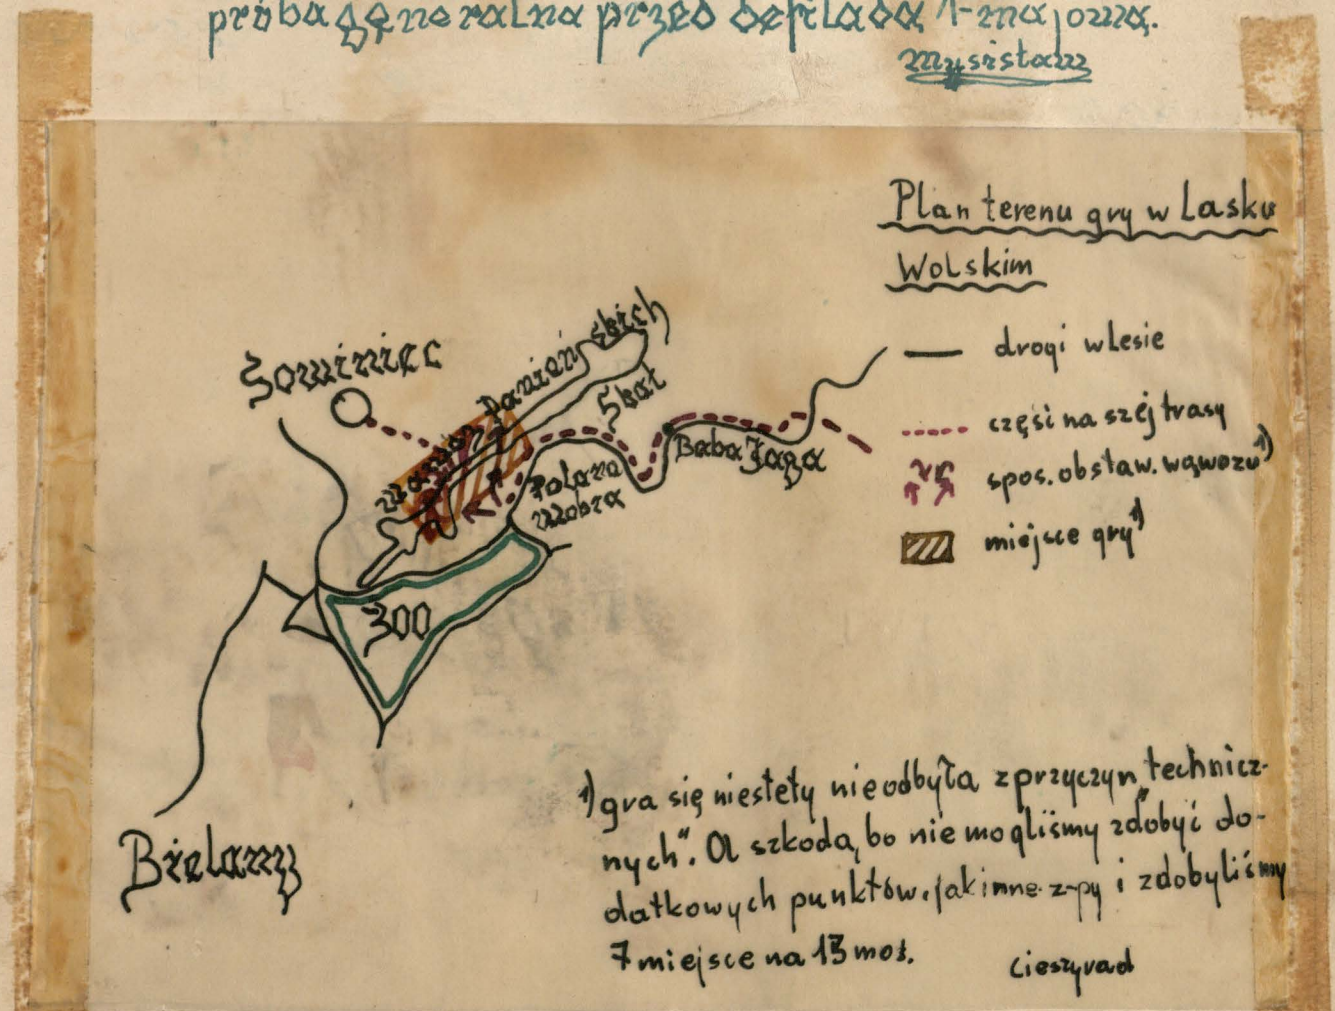 próba generalna przed defiladą 1-majową.
Mysisław
Plan terenu gry w Lasku
Wolskim
drogi w lesie
części naszej trasy
spos. obstaw. wąwozu 1)
miejsce gry 1)
Sowiniec
Wąwóz Panieńskich
Skał
Baba Jaga
Polana
Mobra
ZOO
Bielany
1) gra się niestety nieodbyła z przyczyn „technicz-
nych". A szkoda, bo nie mogliśmy zdobyć do-
datkowych punktów, jak inne z-py i zdobyliśmy
7 miejsce na 13 moż.